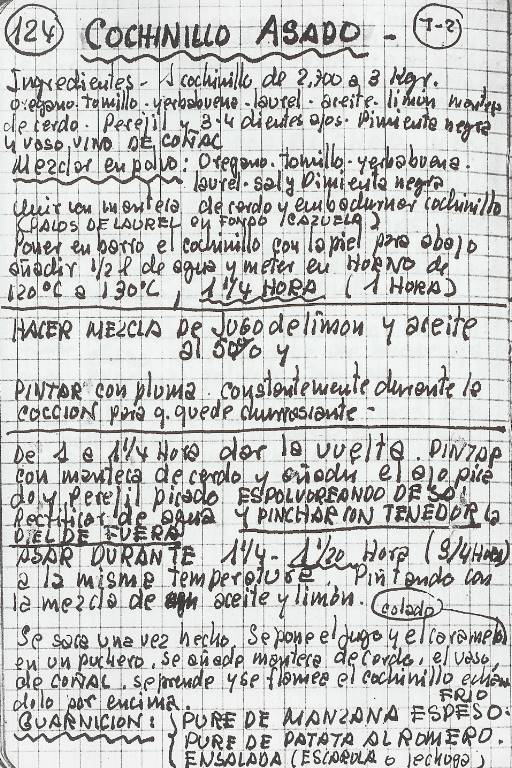 124 COCHINILLO ASADO - T-2
Ingredientes - 1 cochinillo de 2,700 a 3 Kgr.
oregano. tomillo. yerbabuena. laurel. aceite. limon manteca
de cerdo. Perejil y 3-4 dientes ajos. Pimienta negra
y VASO VINO DE COÑAC
Mezclar en polvo: Oregano. tomillo. yerbabuena.
laurel. sal y Pimienta negra
Unir con manteca de cerdo y embadurnar cochinillo
(PALOS DE LAUREL en FONDO CAZUELA)
Poner en barro el cochinillo con la piel para abajo
añadir 1/2 l de agua y meter en HORNO de
120ºC a 130ºC, 1 1/4 HORA (1 HORA)
HACER MEZCLA De JUGO de limon y aceite
al 50% y
PINTAR con pluma constantemente durante la
COCCION para q. quede churruscante -
De 1 a 1 1/4 Hora dar la vuelta. PINTAR
con manteca de cerdo y añadir el ajo pica
do y Perejil picado ESPOLVOREANDO DE SAL
Rectificar de agua y PINCHAR CON TENEDOR la
PIEL DE FUERA
ASAR DURANTE 1 1/4 - 1 1/20 Hora (3/4 Hora)
a la misma Temperatura. Pintando con
la mezcla de aceite y limón. colado
Se saca una vez hecho. Se pone el jugo y el caramelo
en un puchero, se añade manteca de cerdo, el vaso
de COÑAC, se prende y se flamea el cochinillo echán
dolo por encima. FRIO
GUARNICION: PURE DE MANZANA ESPESO.
PURE DE PATATA AL ROMERO.
ENSALADA (ESCAROLA o lechuga)